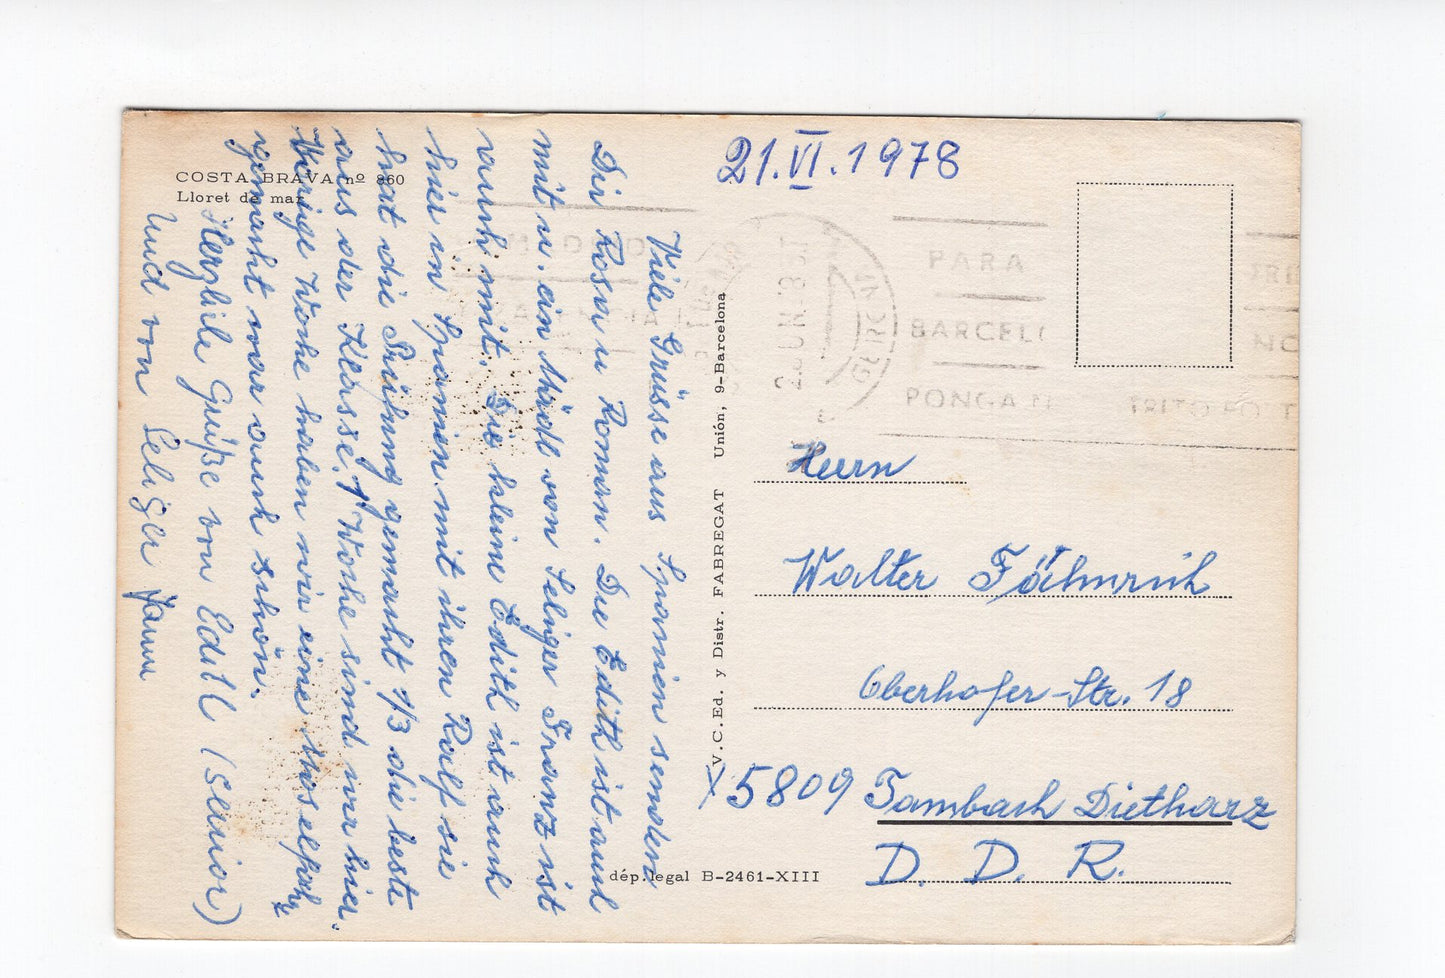 COSTA BRAVA nº 860
Lloret de mar
21.VI.1978
Viele Grüsse aus Spanien senden
Dir Rosn u Roman. Die Edith ist auch
mit u. ein Mädl von Seliger Franz ist
auch mit. Die kleine Edith ist auch
hier in Spanien mit ihren Rolf sie
hat die Prüfung gemacht 1/3 die beste
aus der Klasse, 1 Woche sind wir hier.
Vorige Woche haben wir eine
gemacht war auch schön.
Herzliche Grüße von Edith (Senior)
Und von Seliger
V.C.Ed. y Distr. FABREGAT Unión, 9-Barcelona
dép. legal B-2461-XIII
MADRID
GERONA
PARA
BARCEL
PONGA
Herrn
Walter
Oberhofer-Str. 18
X 5809 Tambach Dietharz
D. D. R.